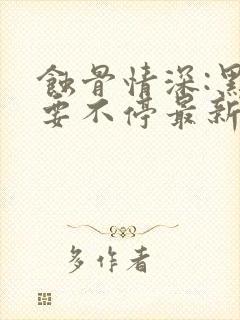 蝕骨情深:黑
要不停最新
多作者